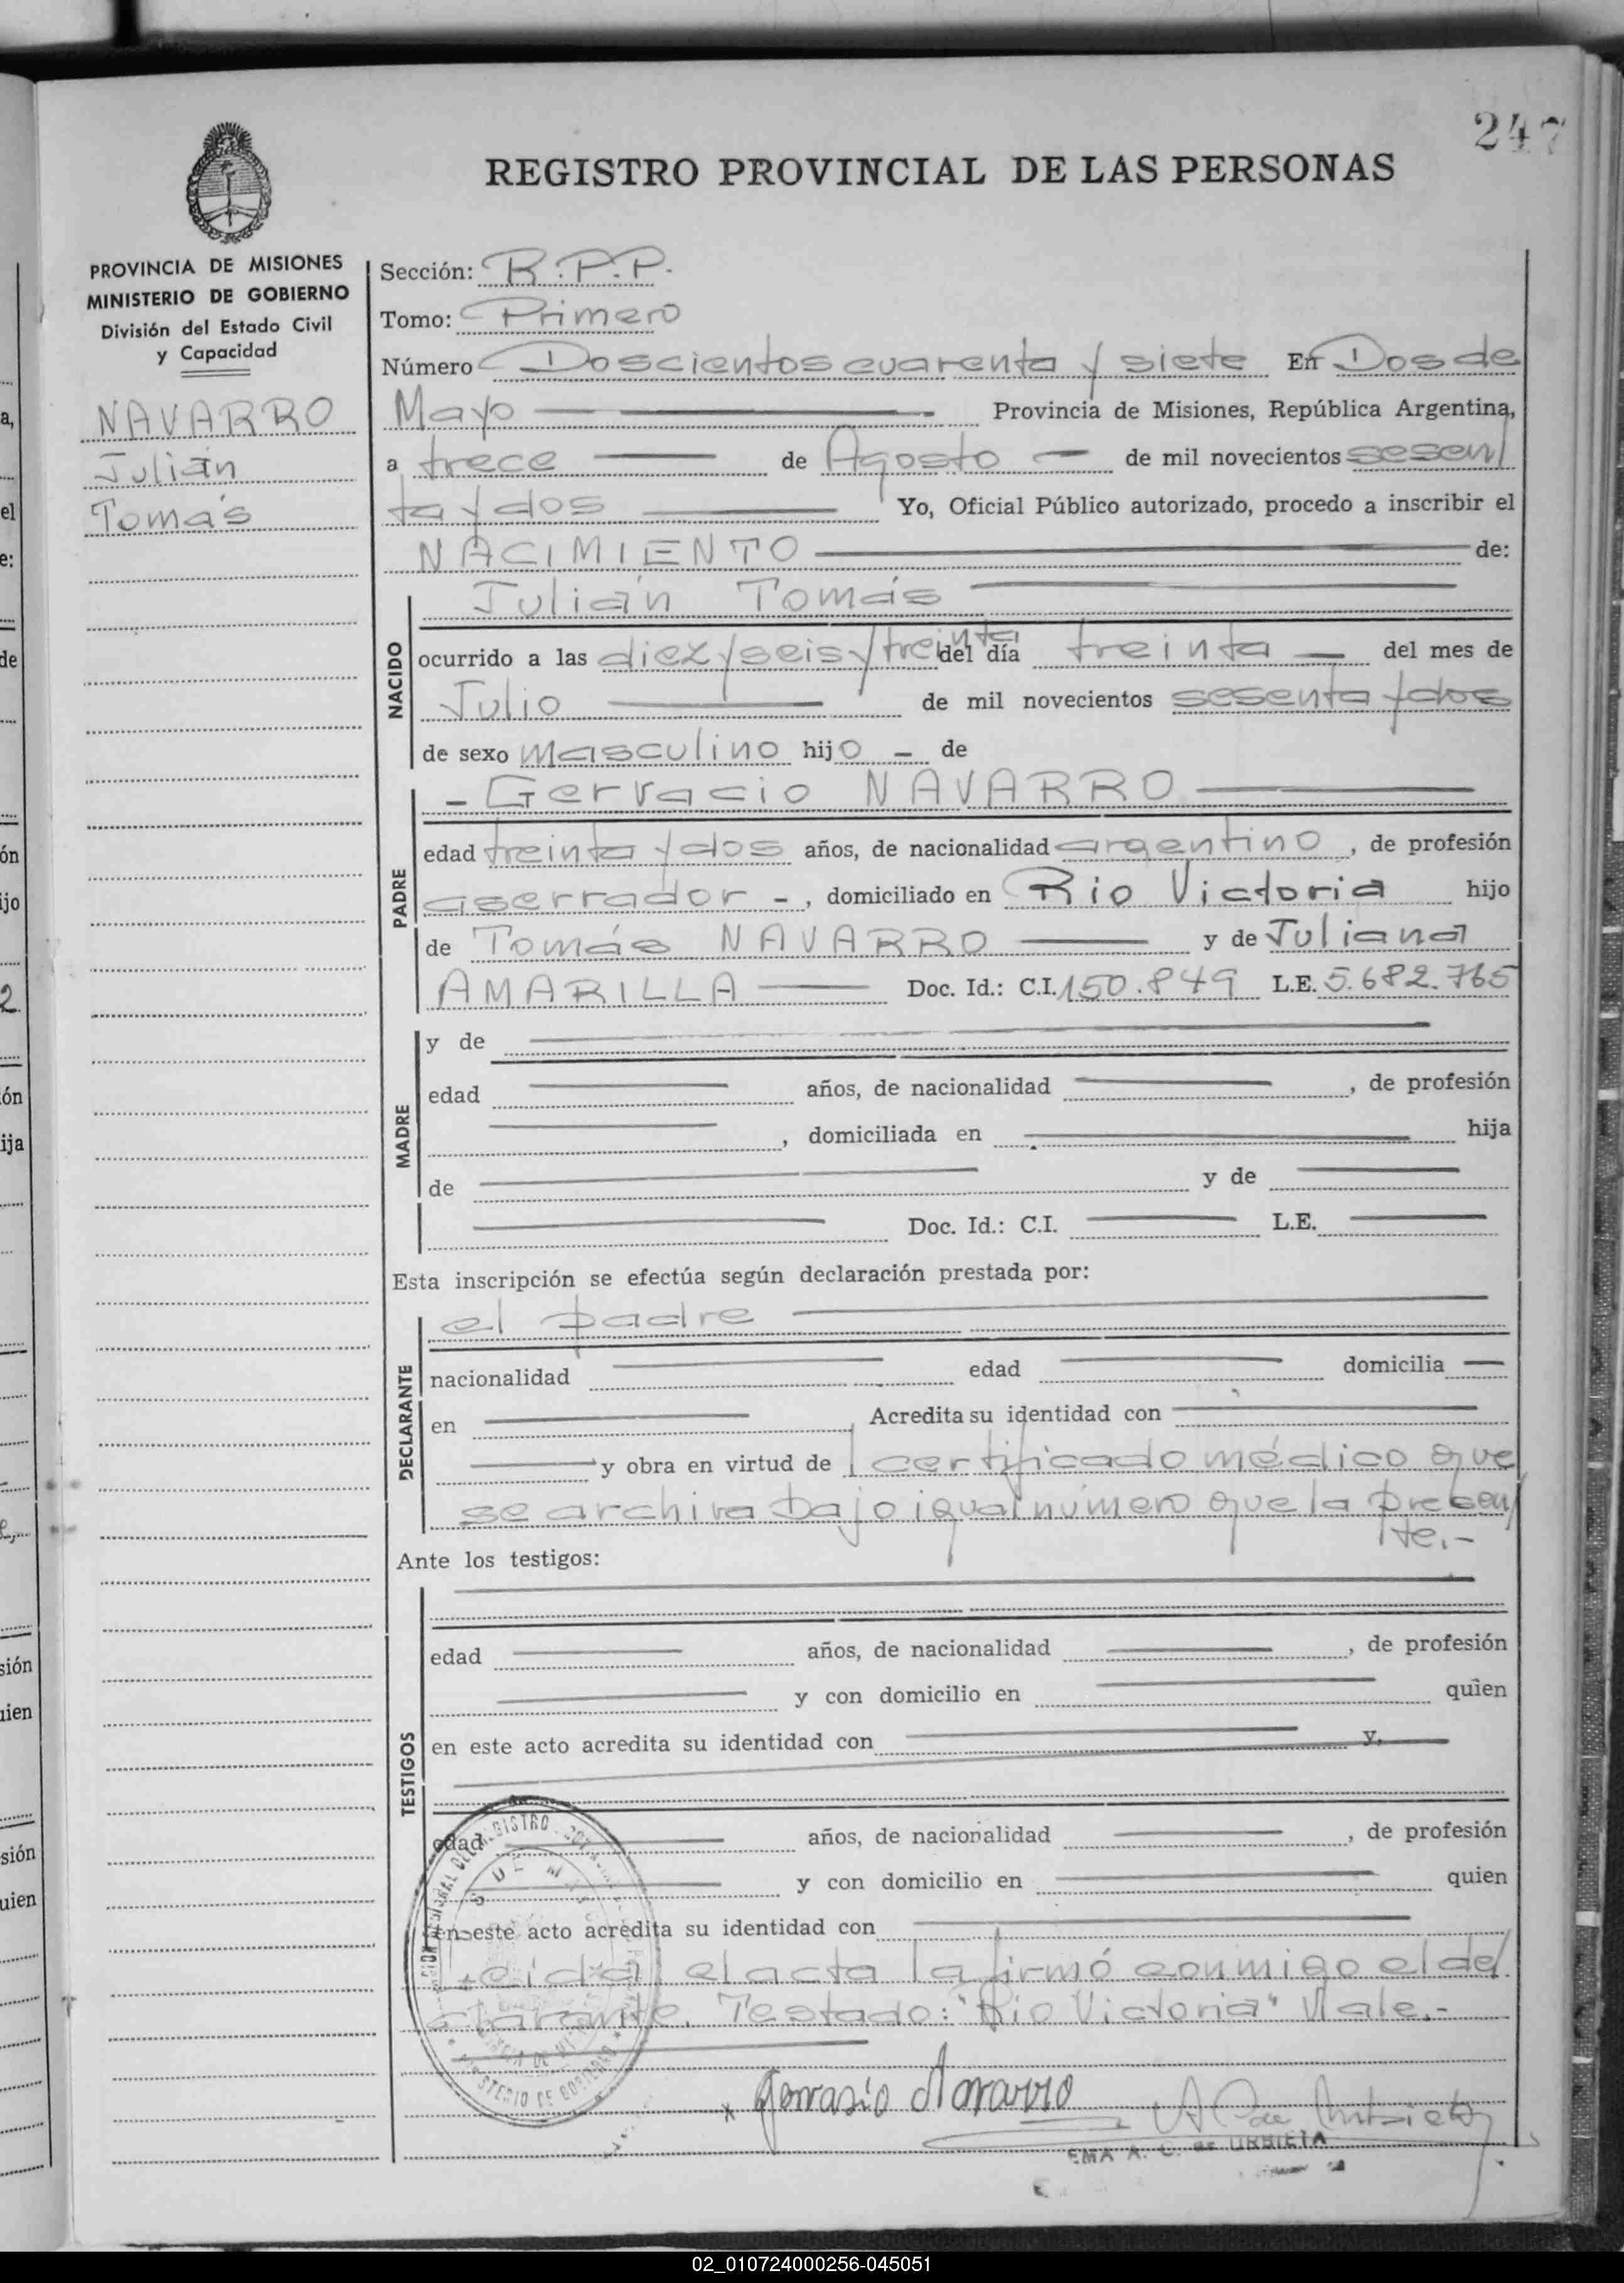 247
REGISTRO PROVINCIAL DE LAS PERSONAS
PROVINCIA DE MISIONES
MINISTERIO DE GOBIERNO
División del Estado Civil
y Capacidad
NAVARRO
Julián
Tomás
Sección: R.P.P.
Tomo: Primero
Número Doscientos cuarenta y siete En Dos de
Mayo Provincia de Misiones, República Argentina,
a trece de Agosto de mil novecientos sesen/
ta y dos Yo, Oficial Público autorizado, procedo a inscribir el
NACIMIENTO de:
NACIDO
Julián Tomás
ocurrido a las diez y seis y treinta del día treinta del mes de
Julio de mil novecientos sesenta y dos
de sexo masculino hijo - de
PADRE
- Gervacio NAVARRO
edad treinta y dos años, de nacionalidad argentino, de profesión
aserrador -, domiciliado en Rio Victoria hijo
de Tomás NAVARRO y de Juliana
AMARILLA Doc. Id.: C.I. 150.849 L.E. 5.682.765
MADRE
y de
edad años, de nacionalidad , de profesión
, domiciliada en hija
de y de
Doc. Id.: C.I. L.E.
Esta inscripción se efectúa según declaración prestada por:
DECLARANTE
el padre
nacionalidad edad domicilia
en Acredita su identidad con
y obra en virtud de certificado médico que
se archiva bajo igual número que la presen/
te.-
Ante los testigos:
TESTIGOS
edad años, de nacionalidad , de profesión
y con domicilio en quien
en este acto acredita su identidad con y,
edad años, de nacionalidad , de profesión
y con domicilio en quien
en este acto acredita su identidad con
Leída el acta la firmó conmigo el de/
clarante. Testado: "Rio Victoria" Vale.-
MINISTERIO DE GOBIERNO
x Gervasio Navarro
EMA A. C. de URBIETA
02_010724000256-045051